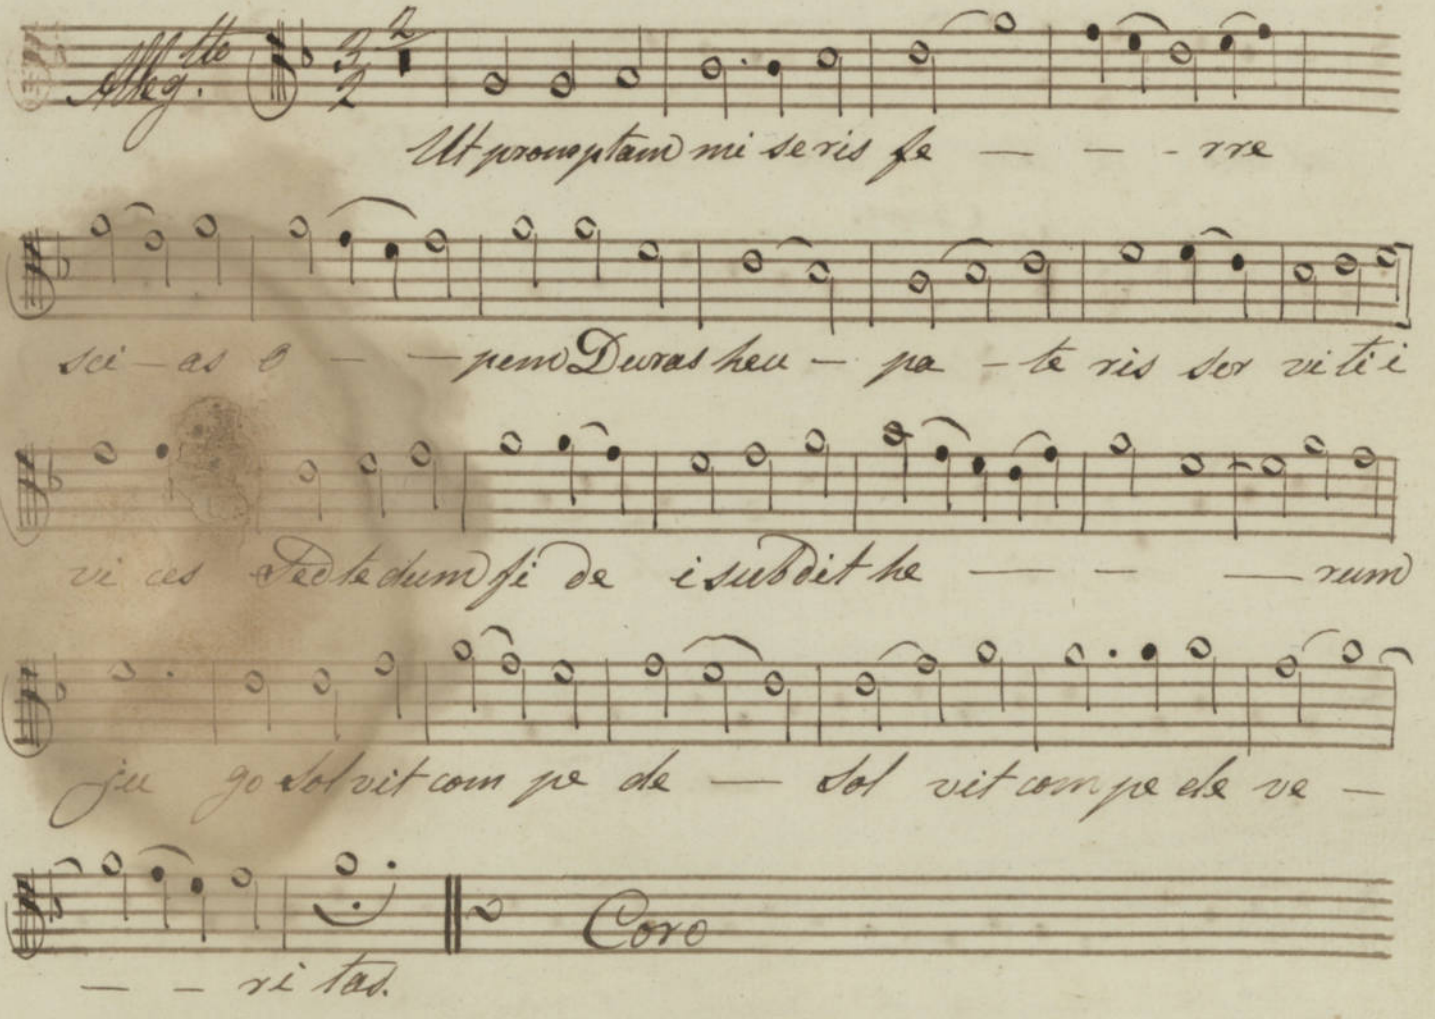 Allegtto. 3 2 2
Ut promptam mi se ris fe — — - rre
sci — as o — — pem Duras heu — pa — te ris ser vi ti i
vi ces Sed te dum fi de i subdit he — — — rum
ju go solvit com pe de — sol vit com pe de ve —
Coro
— — ri tas.